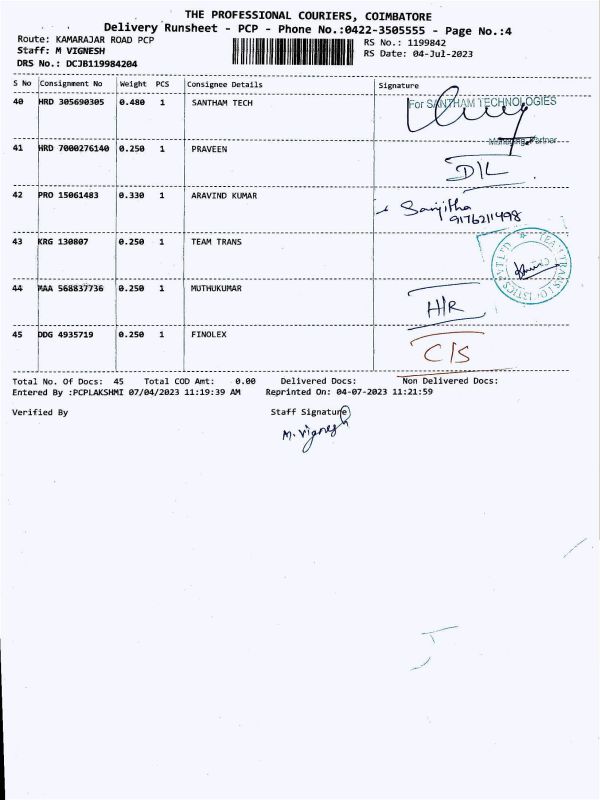 THE PROFESSIONAL COURIERS, COIMBATORE
Delivery Runsheet - PCP - Phone No.:0422-3505555 - Page No.:4
Route: KAMARAJAR ROAD PCP
RS No.: 1199842
Staff: M VIGNESH
RS Date: 04-Jul-2023
DRS No.: DCJB119984204
S No Consignment No Weight PCS Consignee Details Signature
40 HRD 305690305 0.480 1 SANTHAM TECH
For SANTHAM TECHNOLOGIES
Managing Partner
41 HRD 7000276140 0.250 1 PRAVEEN
D/L
42 PRO 15061483 0.330 1 ARAVIND KUMAR
Sanjitha
9176211498
43 KRG 130807 0.250 1 TEAM TRANS
TEAM TRANS LOGISTICS PVT LTD
44 MAA 568837736 0.250 1 MUTHUKUMAR
H/R
45 DDG 4935719 0.250 1 FINOLEX
C/S
Total No. Of Docs: 45 Total COD Amt: 0.00 Delivered Docs: Non Delivered Docs:
Entered By :PCPLAKSHMI 07/04/2023 11:19:39 AM Reprinted On: 04-07-2023 11:21:59
Verified By Staff Signature
M. Vignesh